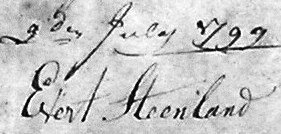 9den July 1799
Evert Steenland